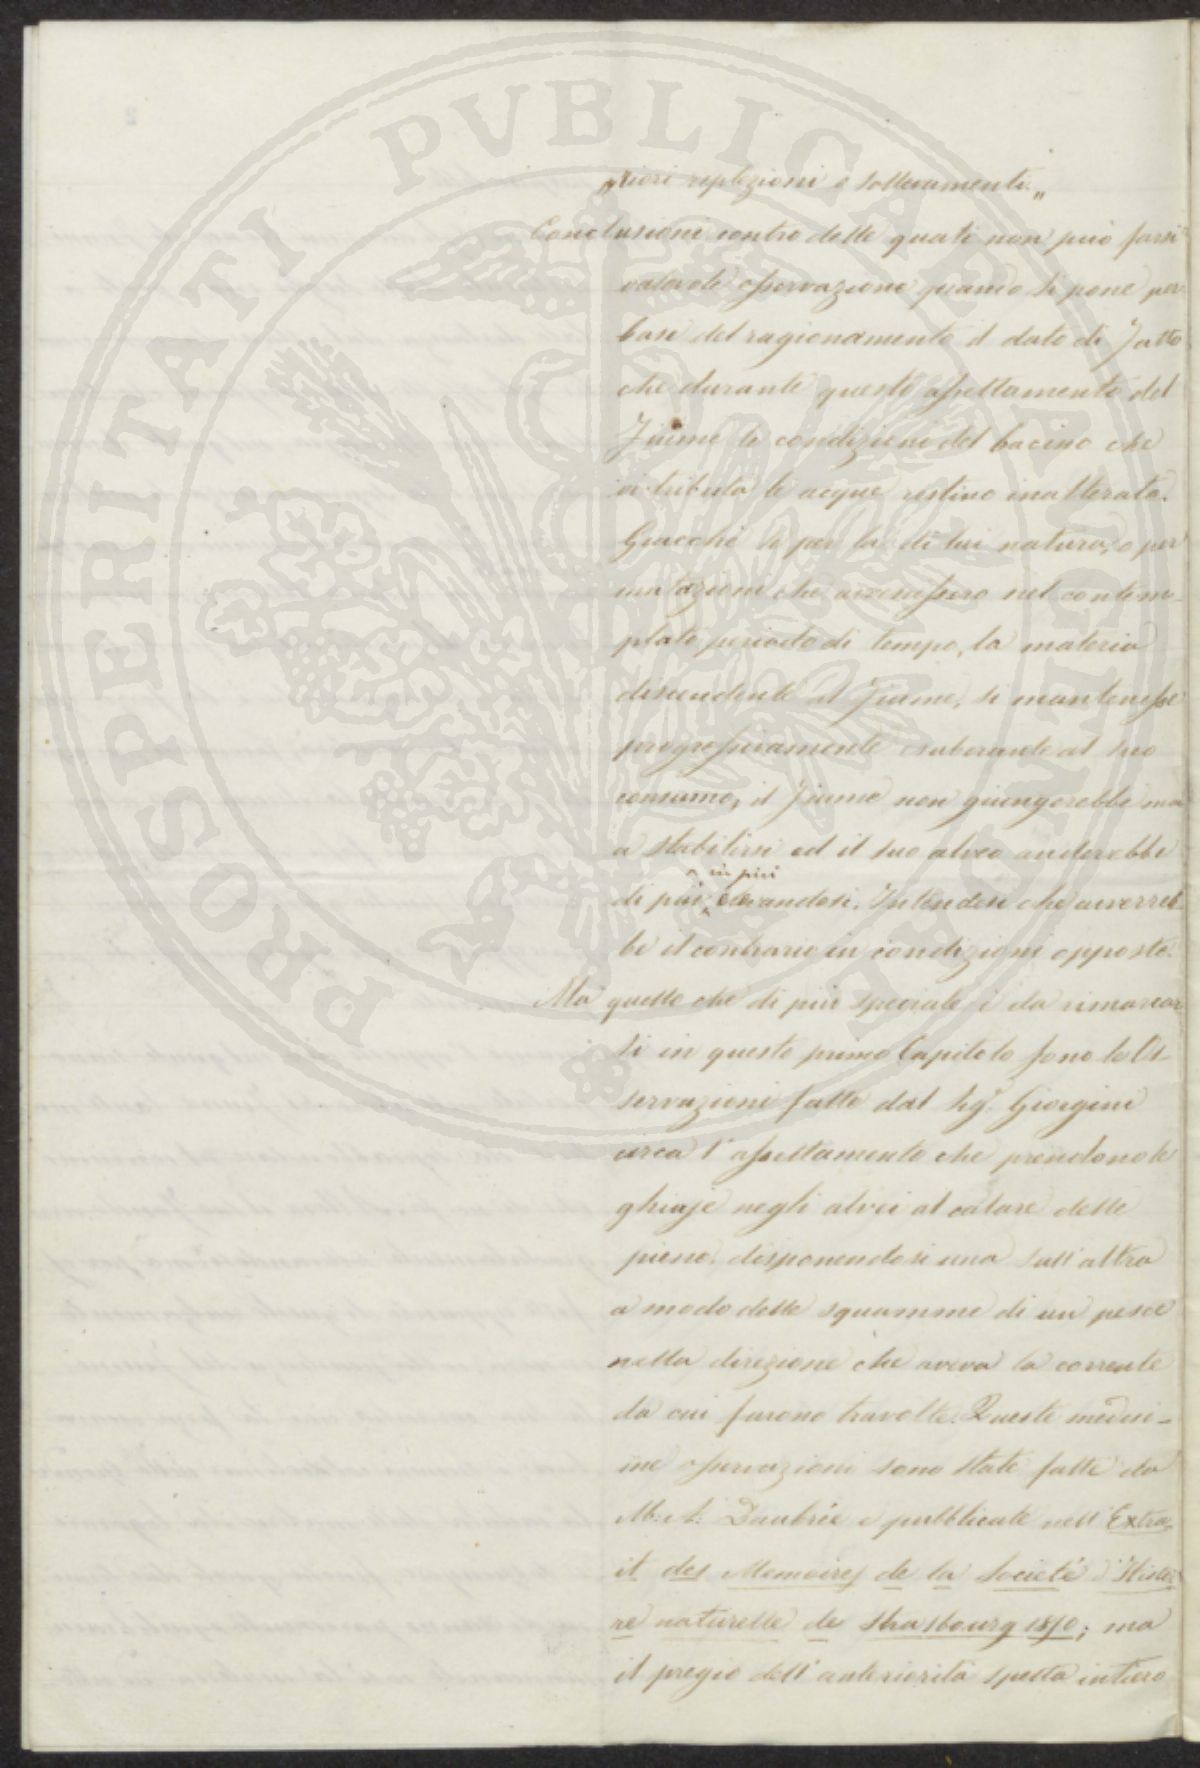 „riori replezioni e sollevamenti.„
Conclusioni contro delle quali non può farsi
valevole osservazione quando si pone per
base del ragionamento il dato di fatto
che durante questo assettamento del
Fiume le condizioni del bacino che
vi tributa le acque restino inalterate.
Giacchè se per la di lui natura, o per
mutazioni che avvenissero nel contem-
plato periodo di tempo, la materia
discendente il Fiume, si mantenesse
progressivamente esuberante al suo
consumo, il Fiume non giungerebbe mai
a stabilirsi ed il suo alveo anderebbe
di più in più elevandosi. Intendesi che avverreb-
be il contrario in condizioni opposte.
Ma quello che di più speciale è da rimarcar
si in questo primo Capitolo sono le Os-
servazioni fatte dal Sig.r Giorgini
circa l'assettamento che prendono le
ghiaje negli alvei al calare delle
piene disponendosi una sull'altra
a modo delle squamme di un pesce
nella direzione che aveva la corrente
da cui furono travolte. Queste medesi-
me osservazioni sono state fatte da
M: A: Daubrée e pubblicate nell'Extra-
it des Memoires de la Societé d'Histoi
re naturelle de Strasbourg 1850; ma
il pregio dell'anteriorità spetta intiero
PROSPERITATI PVBLICAE AVGENDAE